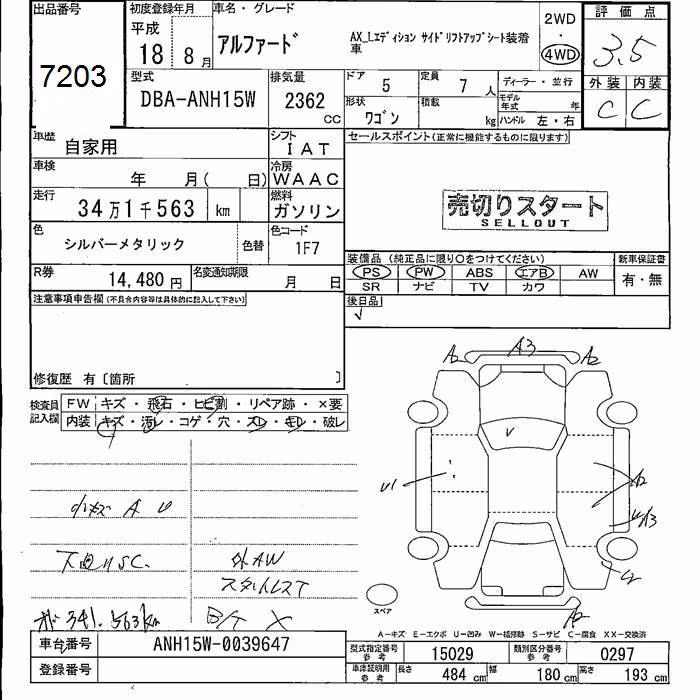 出品番号
7203
初度登録年月
平成
18 8月
車名・グレード
アルファード
AX_Lエディション サイドリフトアップシート装着車
2WD
・
4WD
評価点
3.5
外装 内装
C C
型式
DBA-ANH15W
排気量
2362 CC
ドア 5
定員 7 人
形状 ワゴン
積載 kg
ディーラー・並行
モデル年式 年
ハンドル 左・右
車歴
自家用
シフト
IAT
車検 年 月( 日)
冷房
WAAC
走行
34万1千563 km
燃料
ガソリン
色
シルバーメタリック
色替
色コード
1F7
R券
14,480 円
名変通知期限
月 日
セールスポイント(正常に機能するものに限ります)
売切りスタート
SELLOUT
装備品 (純正品に限り○をつけてください)
PS PW ABS エアB AW
SR ナビ TV カワ
新車保証書
有・無
後日品
注意事項申告欄(不具合内容等は具体的に記入して下さい)
修復歴 有〔箇所 〕
検査員記入欄
FW キズ・飛石・ヒビ割・リペア跡・×要
内装 キズ・汚レ・コゲ・穴・ズレ・キレ・破レ
小キズ A U
下廻りSC.
外AW
スタットレスT
メーター 341.563km
B/T X
A2 A3 A2
U1
A2
C2
A2
スペア
A-キズ E-エクボ U-凹み W-補修跡 S-サビ C-腐食 XX-交換済
車台番号 ANH15W-0039647
登録番号
型式指定番号参考 15029
類別区分番号参考 0297
車庫証明用参考
長さ 484 cm
幅 180 cm
高さ 193 cm